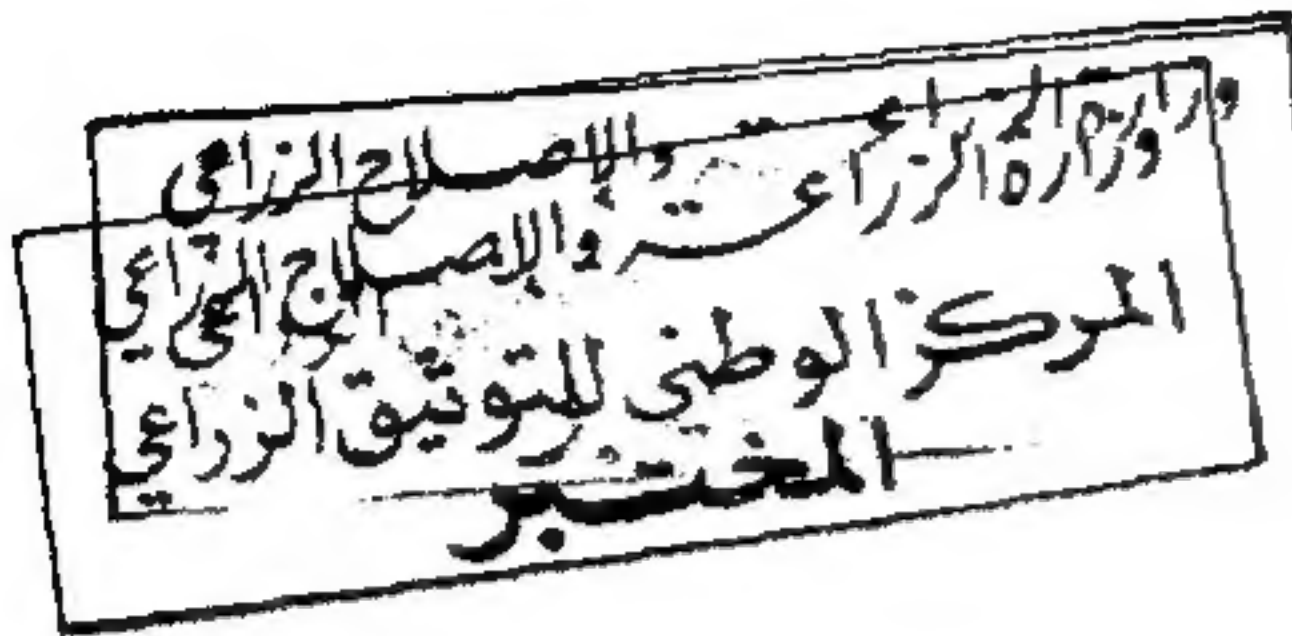 وزارة الزراعة والإصلاح الزراعي
وزارة الزراعة والإصلاح الزراعي
المركز الوطني للتوثيق الزراعي
المختبر